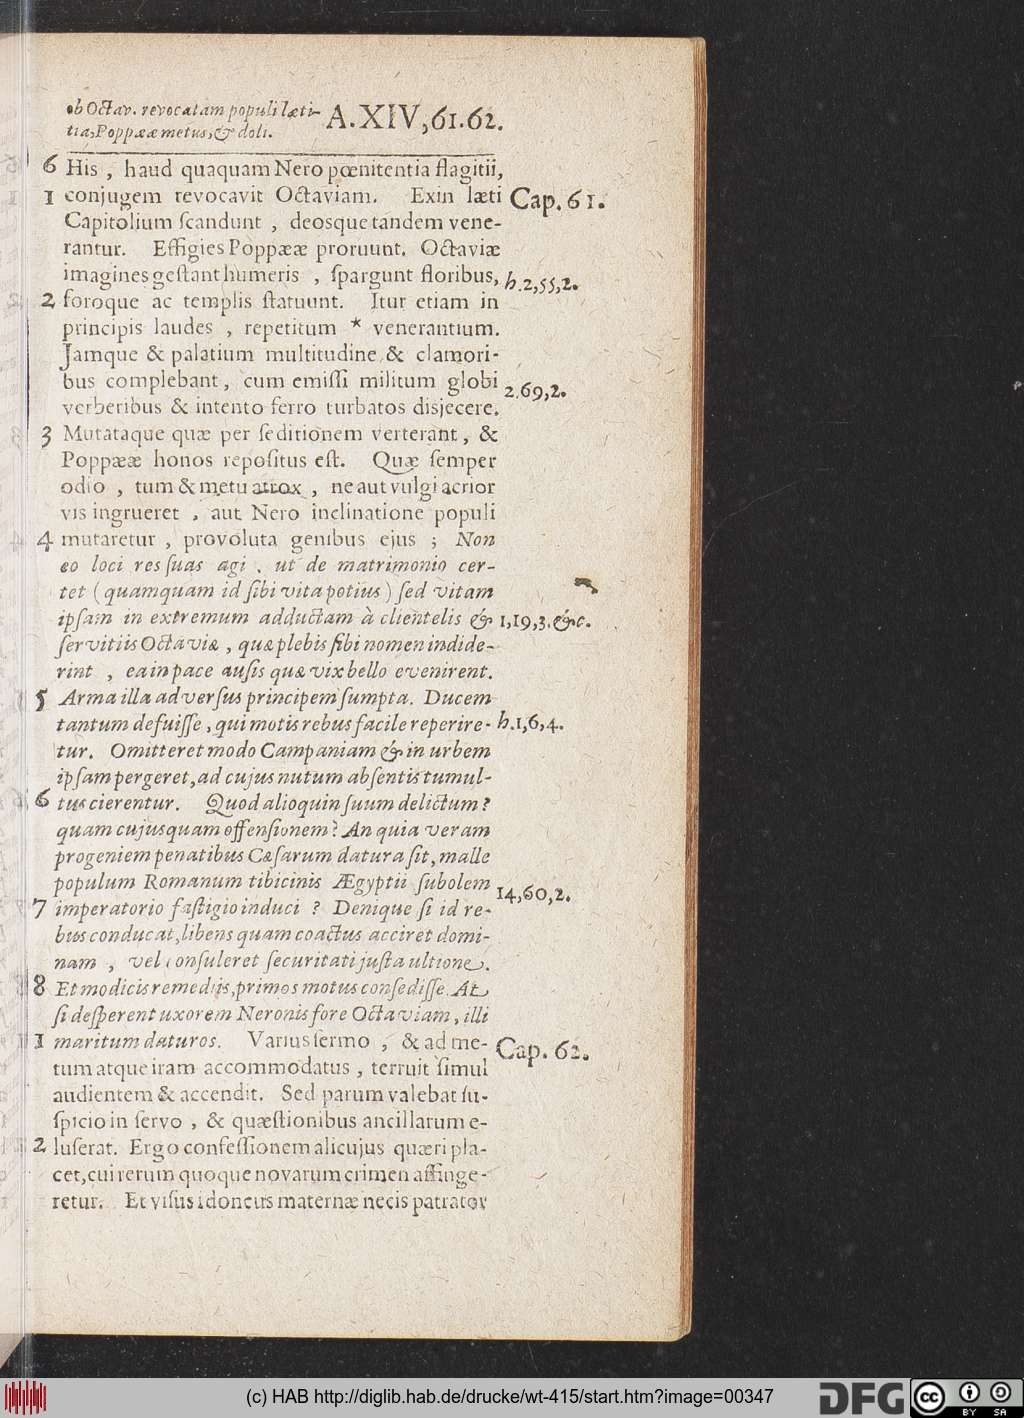 ob Octav. revocatam populi læti-
tia, Poppææ metus, & doli.
A. XIV, 61. 62.
6 His, haud quaquam Nero pœnitentia flagitii,
1 conjugem revocavit Octaviam. Exin læti Cap. 61.
Capitolium ſcandunt, deosque tandem vene-
rantur. Effigies Poppææ proruunt. Octaviæ
imagines geſtant humeris, ſpargunt floribus, h. 2, 55, 2.
2 foroque ac templis ſtatuunt. Itur etiam in
principis laudes, repetitum * venerantium.
Jamque & palatium multitudine & clamori-
bus complebant, cum emiſſi militum globi 2. 69, 2.
verberibus & intento ferro turbatos disjecere.
3 Mutataque quæ per ſeditionem verterant, &
Poppææ honos repoſitus eſt. Quæ ſemper
odio, tum & metu atrox, ne aut vulgi acrior
vis ingrueret, aut Nero inclinatione populi
4 mutaretur, provoluta genibus ejus; Non
eo loci res ſuas agi, ut de matrimonio cer-
tet (quamquam id ſibi vita potius) ſed vitam
ipſam in extremum adductam à clientelis & 1, 19, 3. &c.
ſervitiis Octaviæ, quæ plebis ſibi nomen indide-
rint, ea in pace auſis quæ vix bello evenirent.
5 Arma illa adverſus principem ſumpta. Ducem
tantum defuiſſe, qui motis rebus facile reperire- h. 1, 6, 4.
tur. Omitteret modo Campaniam & in urbem
ipſam pergeret, ad cujus nutum abſentis tumul-
6 tus cierentur. Quod alioquin ſuum delictum?
quam cujusquam offenſionem? An quia veram
progeniem penatibus Cæſarum datura ſit, malle
populum Romanum tibicinis Ægyptii ſubolem 14, 60, 2.
7 imperatorio faſtigio induci? Denique ſi id re-
bus conducat, libens quam coactus acciret domi-
nam, vel conſuleret ſecuritati juſta ultione.
8 Et modicis remediis, primos motus conſediſſe. At
ſi deſperent uxorem Neronis fore Octaviam, illi
1 maritum daturos. Varius ſermo, & ad me- Cap. 62.
tum atque iram accommodatus, terruit ſimul
audientem & accendit. Sed parum valebat ſu-
ſpicio in ſervo, & quæſtionibus ancillarum e-
2 luſerat. Ergo confeſſionem alicujus quæri pla-
cet, cui rerum quoque novarum crimen affinge-
retur. Et viſus idoneus maternæ necis patrator
(c) HAB http://diglib.hab.de/drucke/wt-415/start.htm?image=00347
DFG
cc BY SA